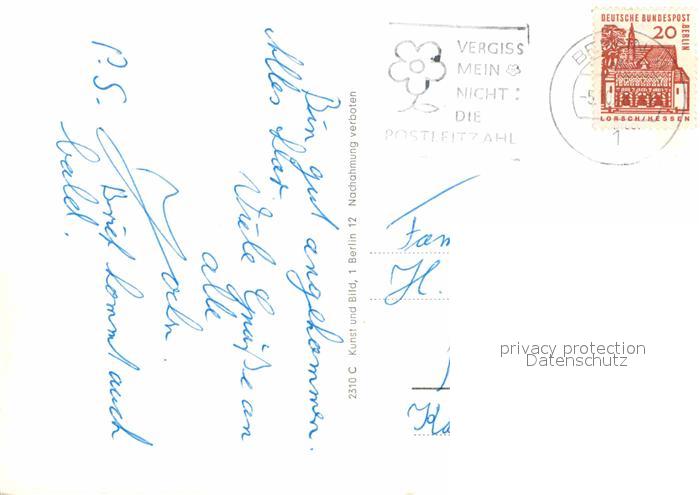 Bin gut angekommen.
Alles klar
Viele Grüße an
alle
P.S. Brief kommt auch
bald!
2310 C Kunst und Bild, 1 Berlin 12 Nachahmung verboten
VERGISS
MEIN
NICHT:
DIE
POSTLEITZAHL
DEUTSCHE BUNDESPOST
BERLIN
20
LORSCH/HESSEN
1
Fam
H.
Ka
privacy protection
Datenschutz